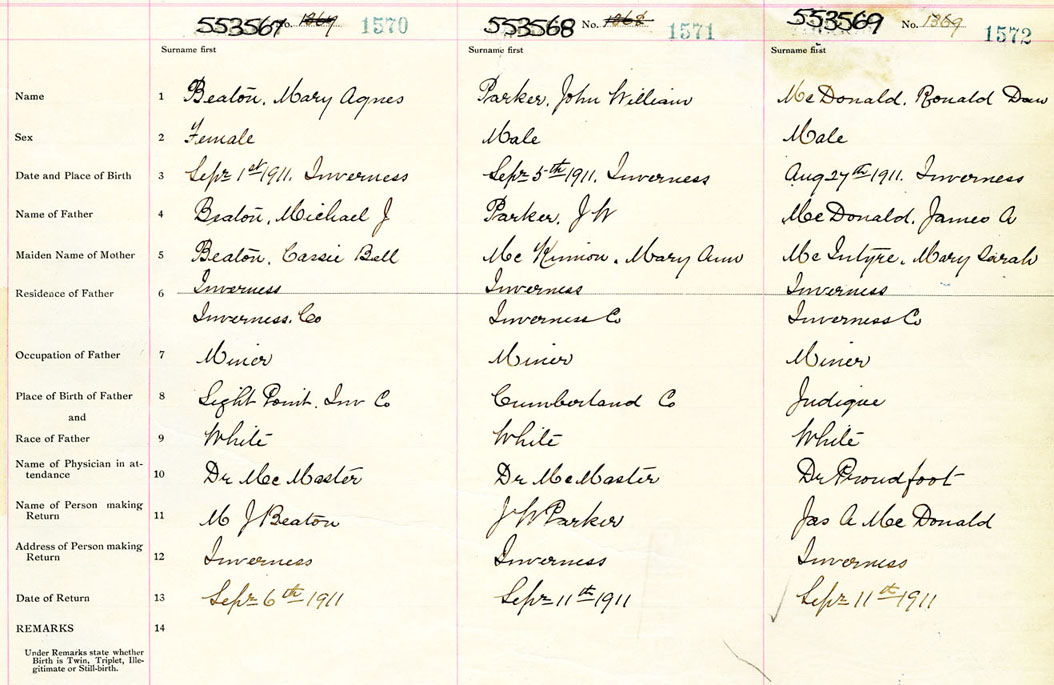 553567 No. 1367 1570 553568 No. 1368 1571 553569 No. 1369 1572
Surname first Surname first Surname first
Name 1 Beaton, Mary Agnes Parker, John William McDonald, Ronald Dan
Sex 2 Female Male Male
Date and Place of Birth 3 Sept 1st 1911. Inverness Sept 5th 1911. Inverness Aug 27th 1911. Inverness
Name of Father 4 Beaton, Michael J Parker, J W McDonald, James A
Maiden Name of Mother 5 Beaton, Cassie Bell McKinnon, Mary Ann McIntyre, Mary Sarah
Residence of Father 6 Inverness Inverness Inverness
Inverness. Co Inverness Co Inverness Co
Occupation of Father 7 Miner Miner Miner
Place of Birth of Father 8 Sight Point. Inv Co Cumberland Co Judique
and
Race of Father 9 White White White
Name of Physician in at-
tendance 10 Dr McMaster Dr McMaster Dr Proudfoot
Name of Person making
Return 11 M J Beaton J W Parker Jas A McDonald
Address of Person making
Return 12 Inverness Inverness Inverness
Date of Return 13 Sept 6th 1911 Sept 11th 1911 Sept 11th 1911
REMARKS 14
Under Remarks state whether
Birth is Twin, Triplet, Ille-
gitimate or Still-birth.